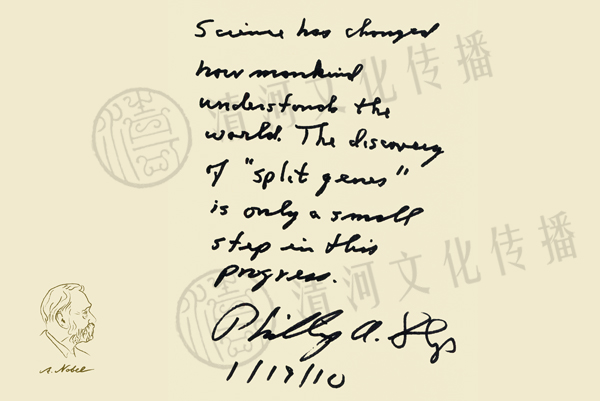 Science has changed
how mankind
understands the
world. The discovery
of "split genes"
is only a small
step in this
progress.
Phillip A. Sharp
1/19/10
清河文化传播
清河文化传播
A. Nobel